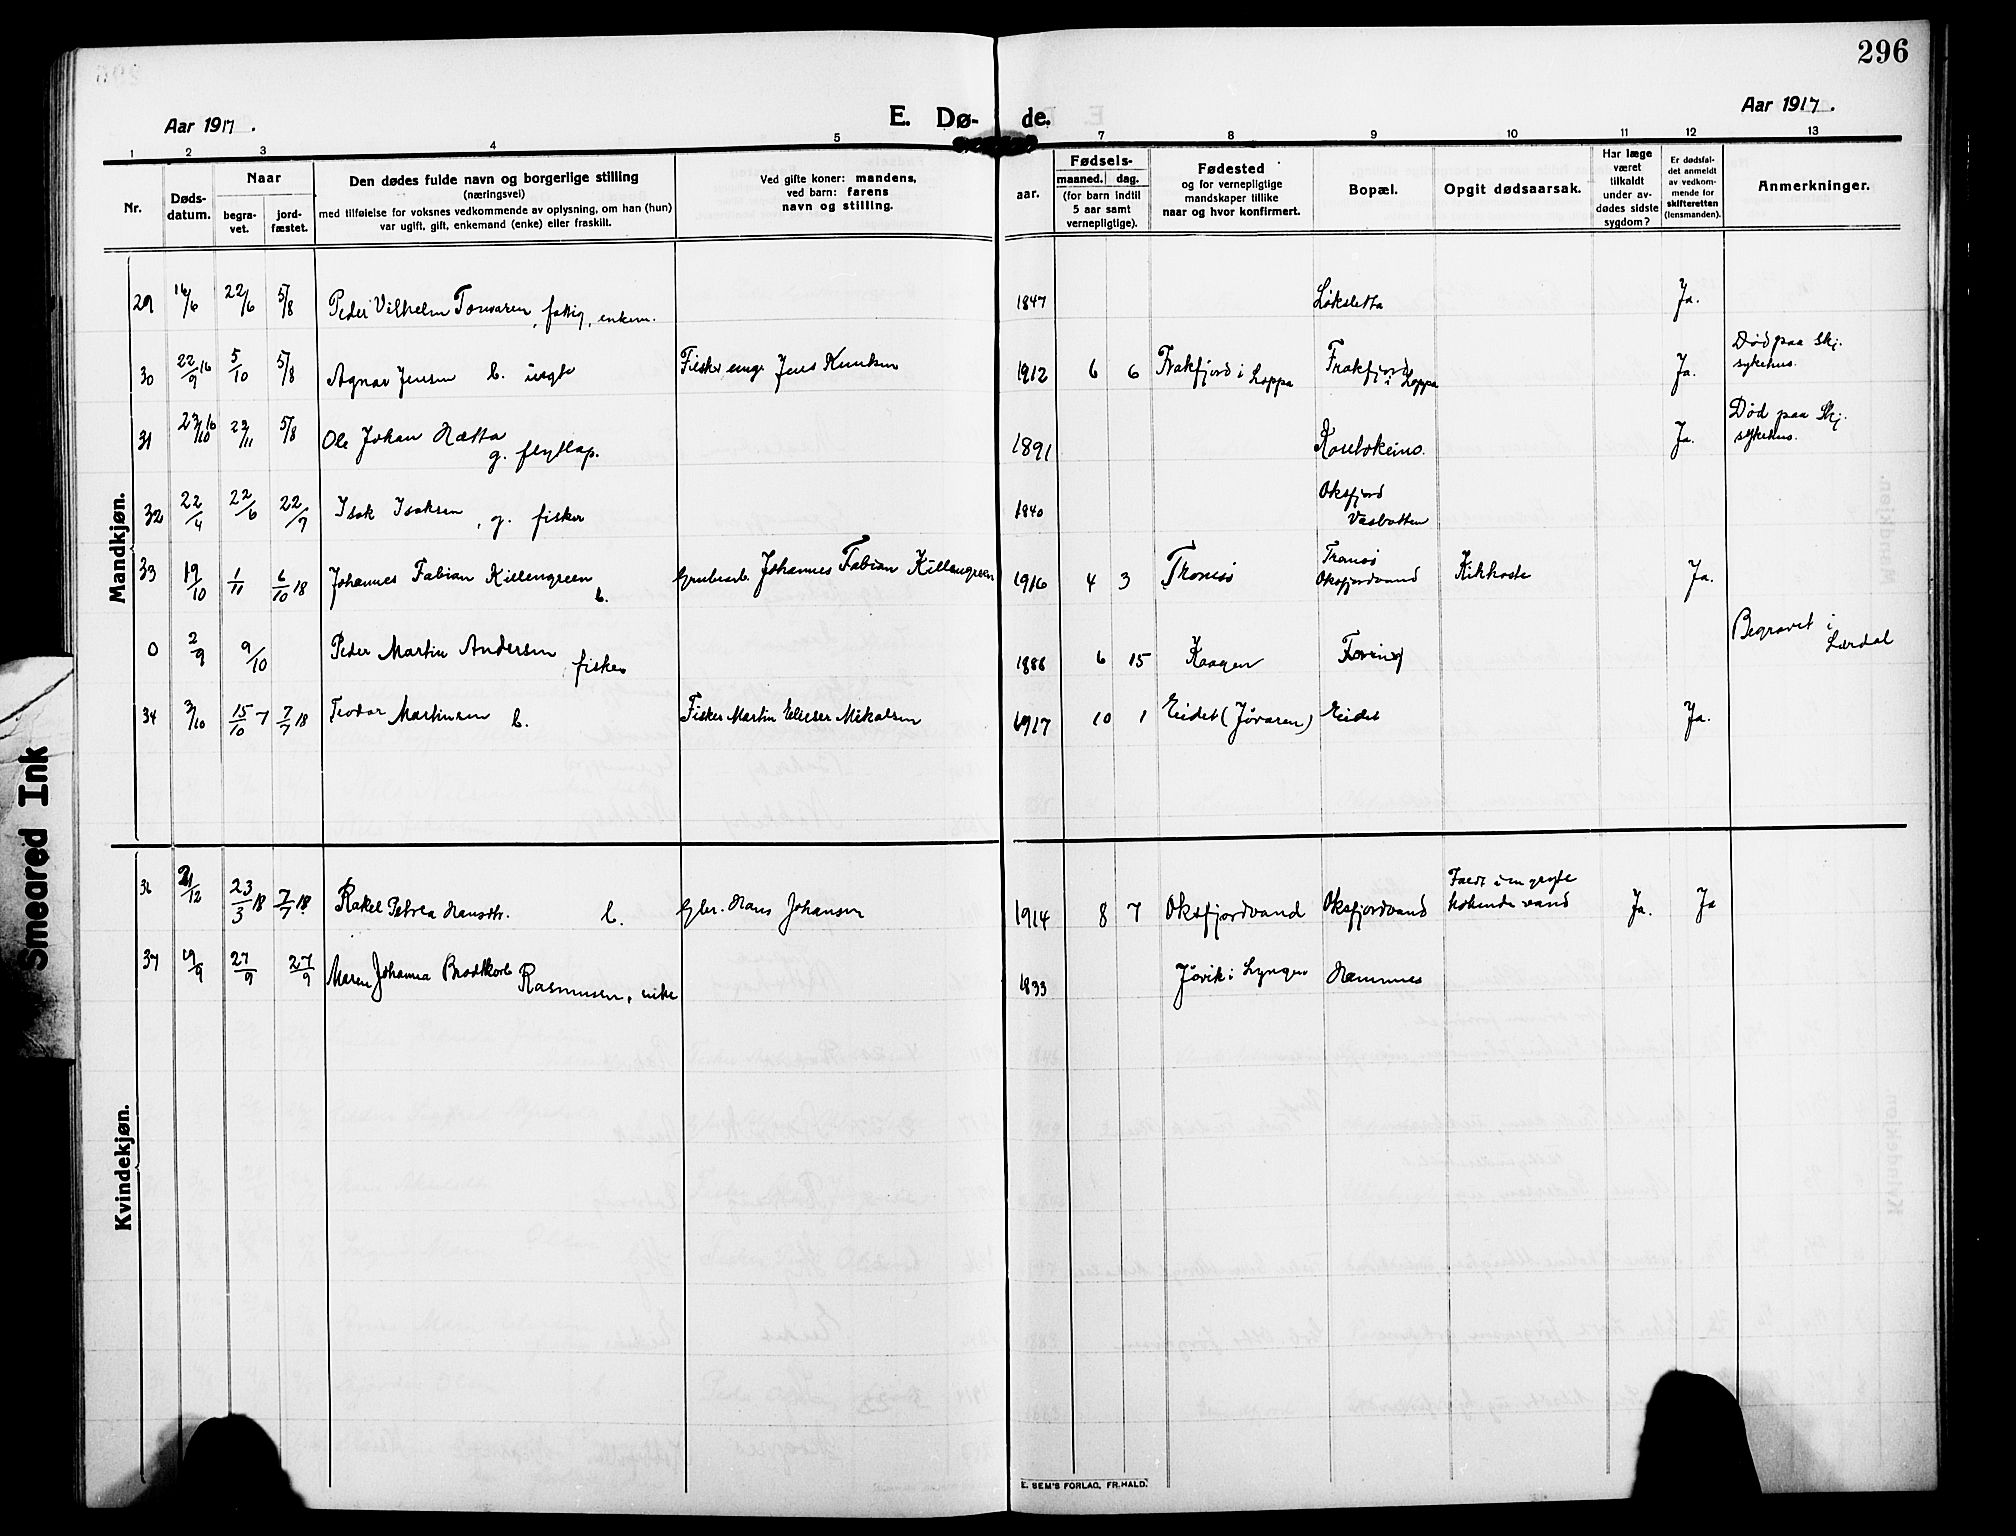 296
Aar 1917.
E. Dø- de.
Aar 1917.
1 2 3 4 5 7 8 9 10 11 12 13
Nr.
Døds-
datum.
Naar
begra-
vet.
jord-
fæstet.
Den dødes fulde navn og borgerlige stilling
(næringsvei)
med tilføielse for voksnes vedkommende av oplysning, om han (hun)
var ugift, gift, enkemand (enke) eller fraskilt.
Ved gifte koner: mandens,
ved barn: farens
navn og stilling.
Fødsels-
aar.
maaned. dag.
(for barn indtil
5 aar samt
vernepligtige).
Fødested
og for vernepligtige
mandskaper tillike
naar og hvor konfirmert.
Bopæl.
Opgit dødsaarsak.
Har læge
været
tilkaldt
under av-
dødes sidste
sygdom?
Er dødsfal-
det anmeldt
av vedkom-
mende for
skifteretten
(lensmanden).
Anmerkninger.
Mandkjøn.
29 16/6 22/6 5/8 Peder Vilhelm , fattig, enkem. 1847 Løksletta Ja.
30 22/9 16 5/10 5/8 Agnar Jensen b. Fisker Jens Knutsen 1912 6 6 Frakfjord i Loppa Frakfjord i Loppa Ja. Død paa Skj.
sykehus.
31 23/10 16 23/11 5/8 Ole Johan Hætta
g. flytlap. 1891 Koutokeino. Ja. Død paa Skj.
sykehus.
32 22/4 22/6 22/9 Isak Isaksen, g. fisker 1840 Oksfjord
Vasbotten
33 19/10 1/11 6/10 18 Johannes Fabian Killengreen b. Grubearb. Johannes Fabian Killengreen 1916 4 3 Tromsø Tromsø
Oksfjordvand Kikhoste Ja.
0 2/9 9/10 Peder Martin Andersen fisker 1888 6 15 Kaagen Begravet i
Lærdal
34 3/10 15/10 7 7/7 18 Teodor Martinsen b. Fisker Martin Elieser Mikalsen 1917 10 1 Eidet (Jøvaren) Eidet Ja.
Kvindekjøn.
36 21/12 23/3 18 7/7 18 Rakel Petrea Hansdtr. b. Gbr. Hans Johansen 1914 8 7 Oksfjordvand Oksfjordvand Faldt i en gryte
kokende vand Ja. Ja
37 19/9 27/9 27/9 Maren Johanna Brodtkorb Rasmussen, enke 1833 Jøvik i Lyngen Hamnnes
E. SEM'S FORLAG, FR.HALD.
Smeared Ink